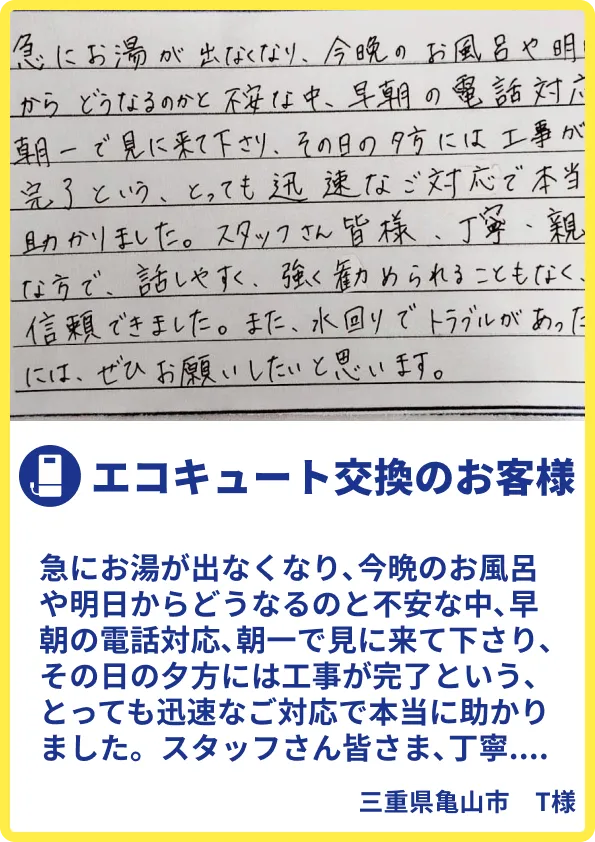 急にお湯が出なくなり、今晩のお風呂や明
からどうなるのかと不安な中、早朝の電話対応
朝一で見に来て下さり、その日の夕方には工事が
完了という、とっても迅速なご対応で本当
助かりました。スタッフさん皆様、丁寧・親
な方で、話しやすく、強く勧められることもなく、
信頼できました。また、水回りでトラブルがあった
には、ぜひお願いしたいと思います。
エコキュート交換のお客様
急にお湯が出なくなり、今晩のお風呂
や明日からどうなるのと不安な中、早
朝の電話対応、朝一で見に来て下さり、
その日の夕方には工事が完了という、
とっても迅速なご対応で本当に助かり
ました。スタッフさん皆さま、丁寧....
三重県亀山市　T様